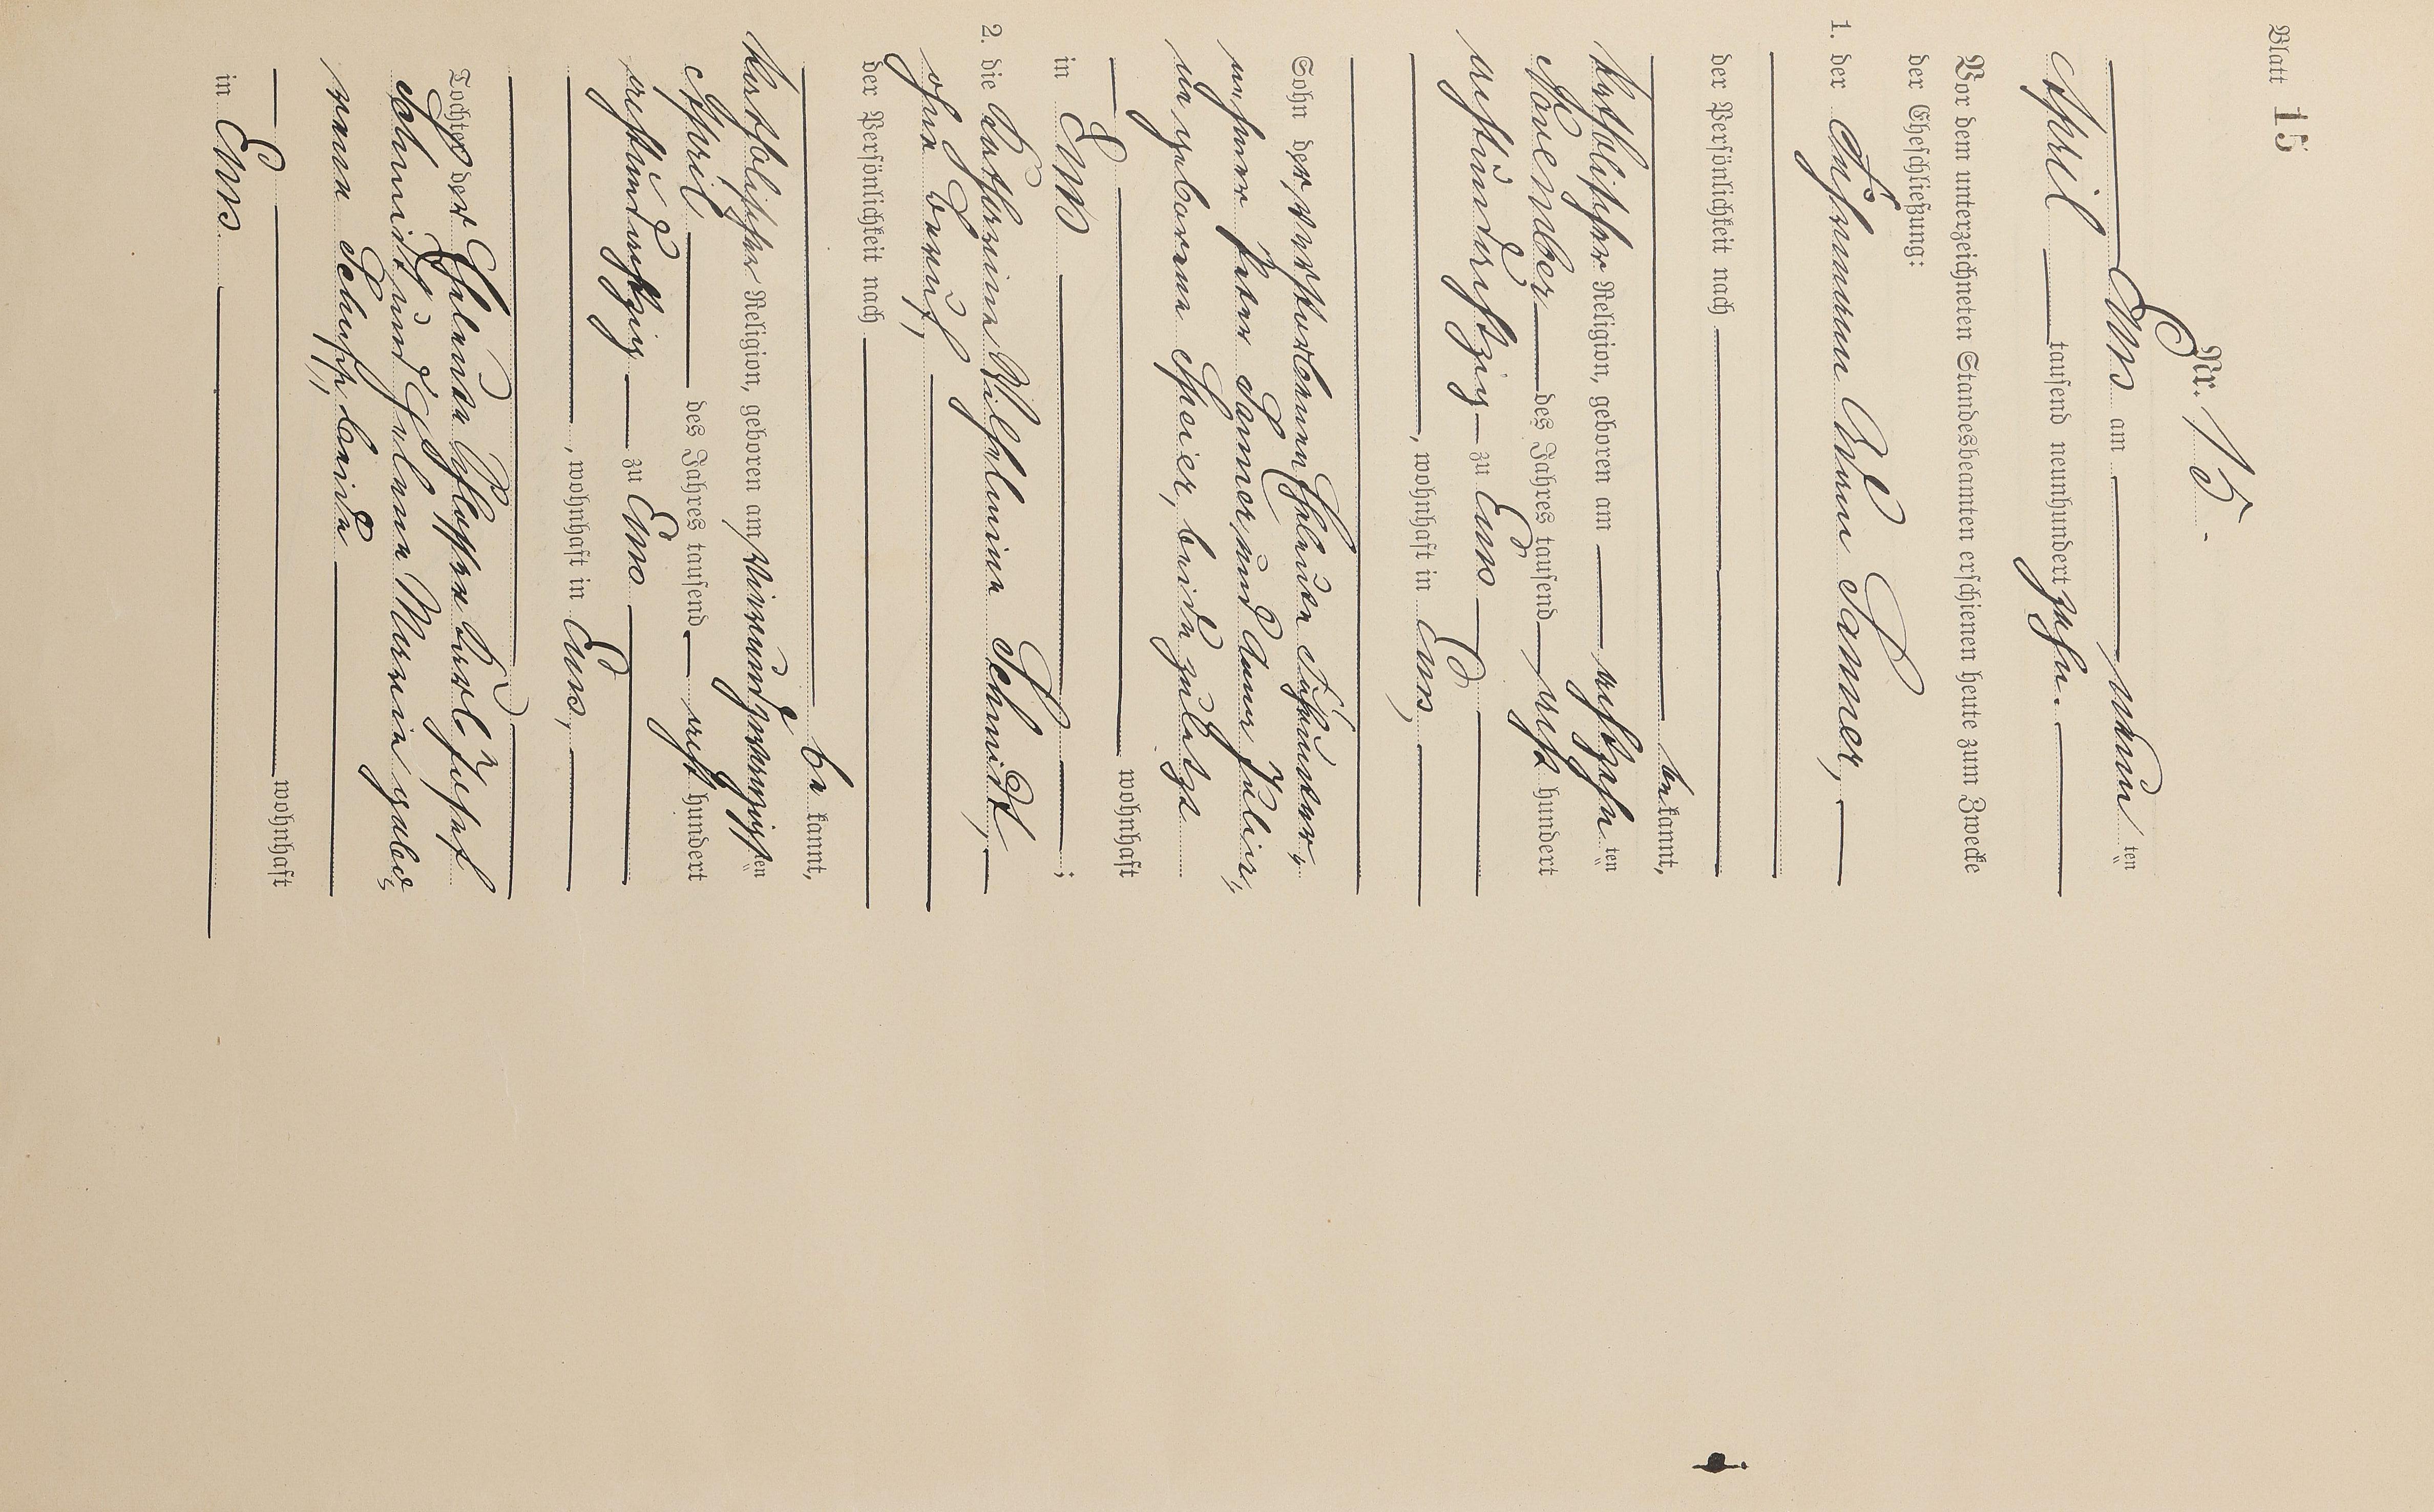 Blatt 15
Nr. 15.
Ems am neun ten
April tausend neunhundert zehn.
Vor dem unterzeichneten Standesbeamten erschienen heute zum Zwecke
der Eheschließung:
1. der Fuhrmann Adam Sanner,
der Persönlichkeit nach
be kannt,
katholischer Religion, geboren am achtzehn ten
November des Jahres tausend acht hundert
achtundachtzig zu Ems
, wohnhaft in Ems,
Sohn der verstorbenen Eheleute
Peter Sanner und Anna Juliane
geborene Speier, beide zuletzt
wohnhaft
in Ems ;
2. die Katharina Wilhelmine Schmidt,
ohne Beruf,
der Persönlichkeit nach
be kannt,
katholischer Religion, geboren am vierundzwanzigsten
April des Jahres tausend acht hundert
achtundachtzig zu Ems
, wohnhaft in Ems,
Tochter der Eheleute Schlosser Karl Josef
Schmidt und Helene Maria gebo-
rene Schupp, beide
wohnhaft
in Ems